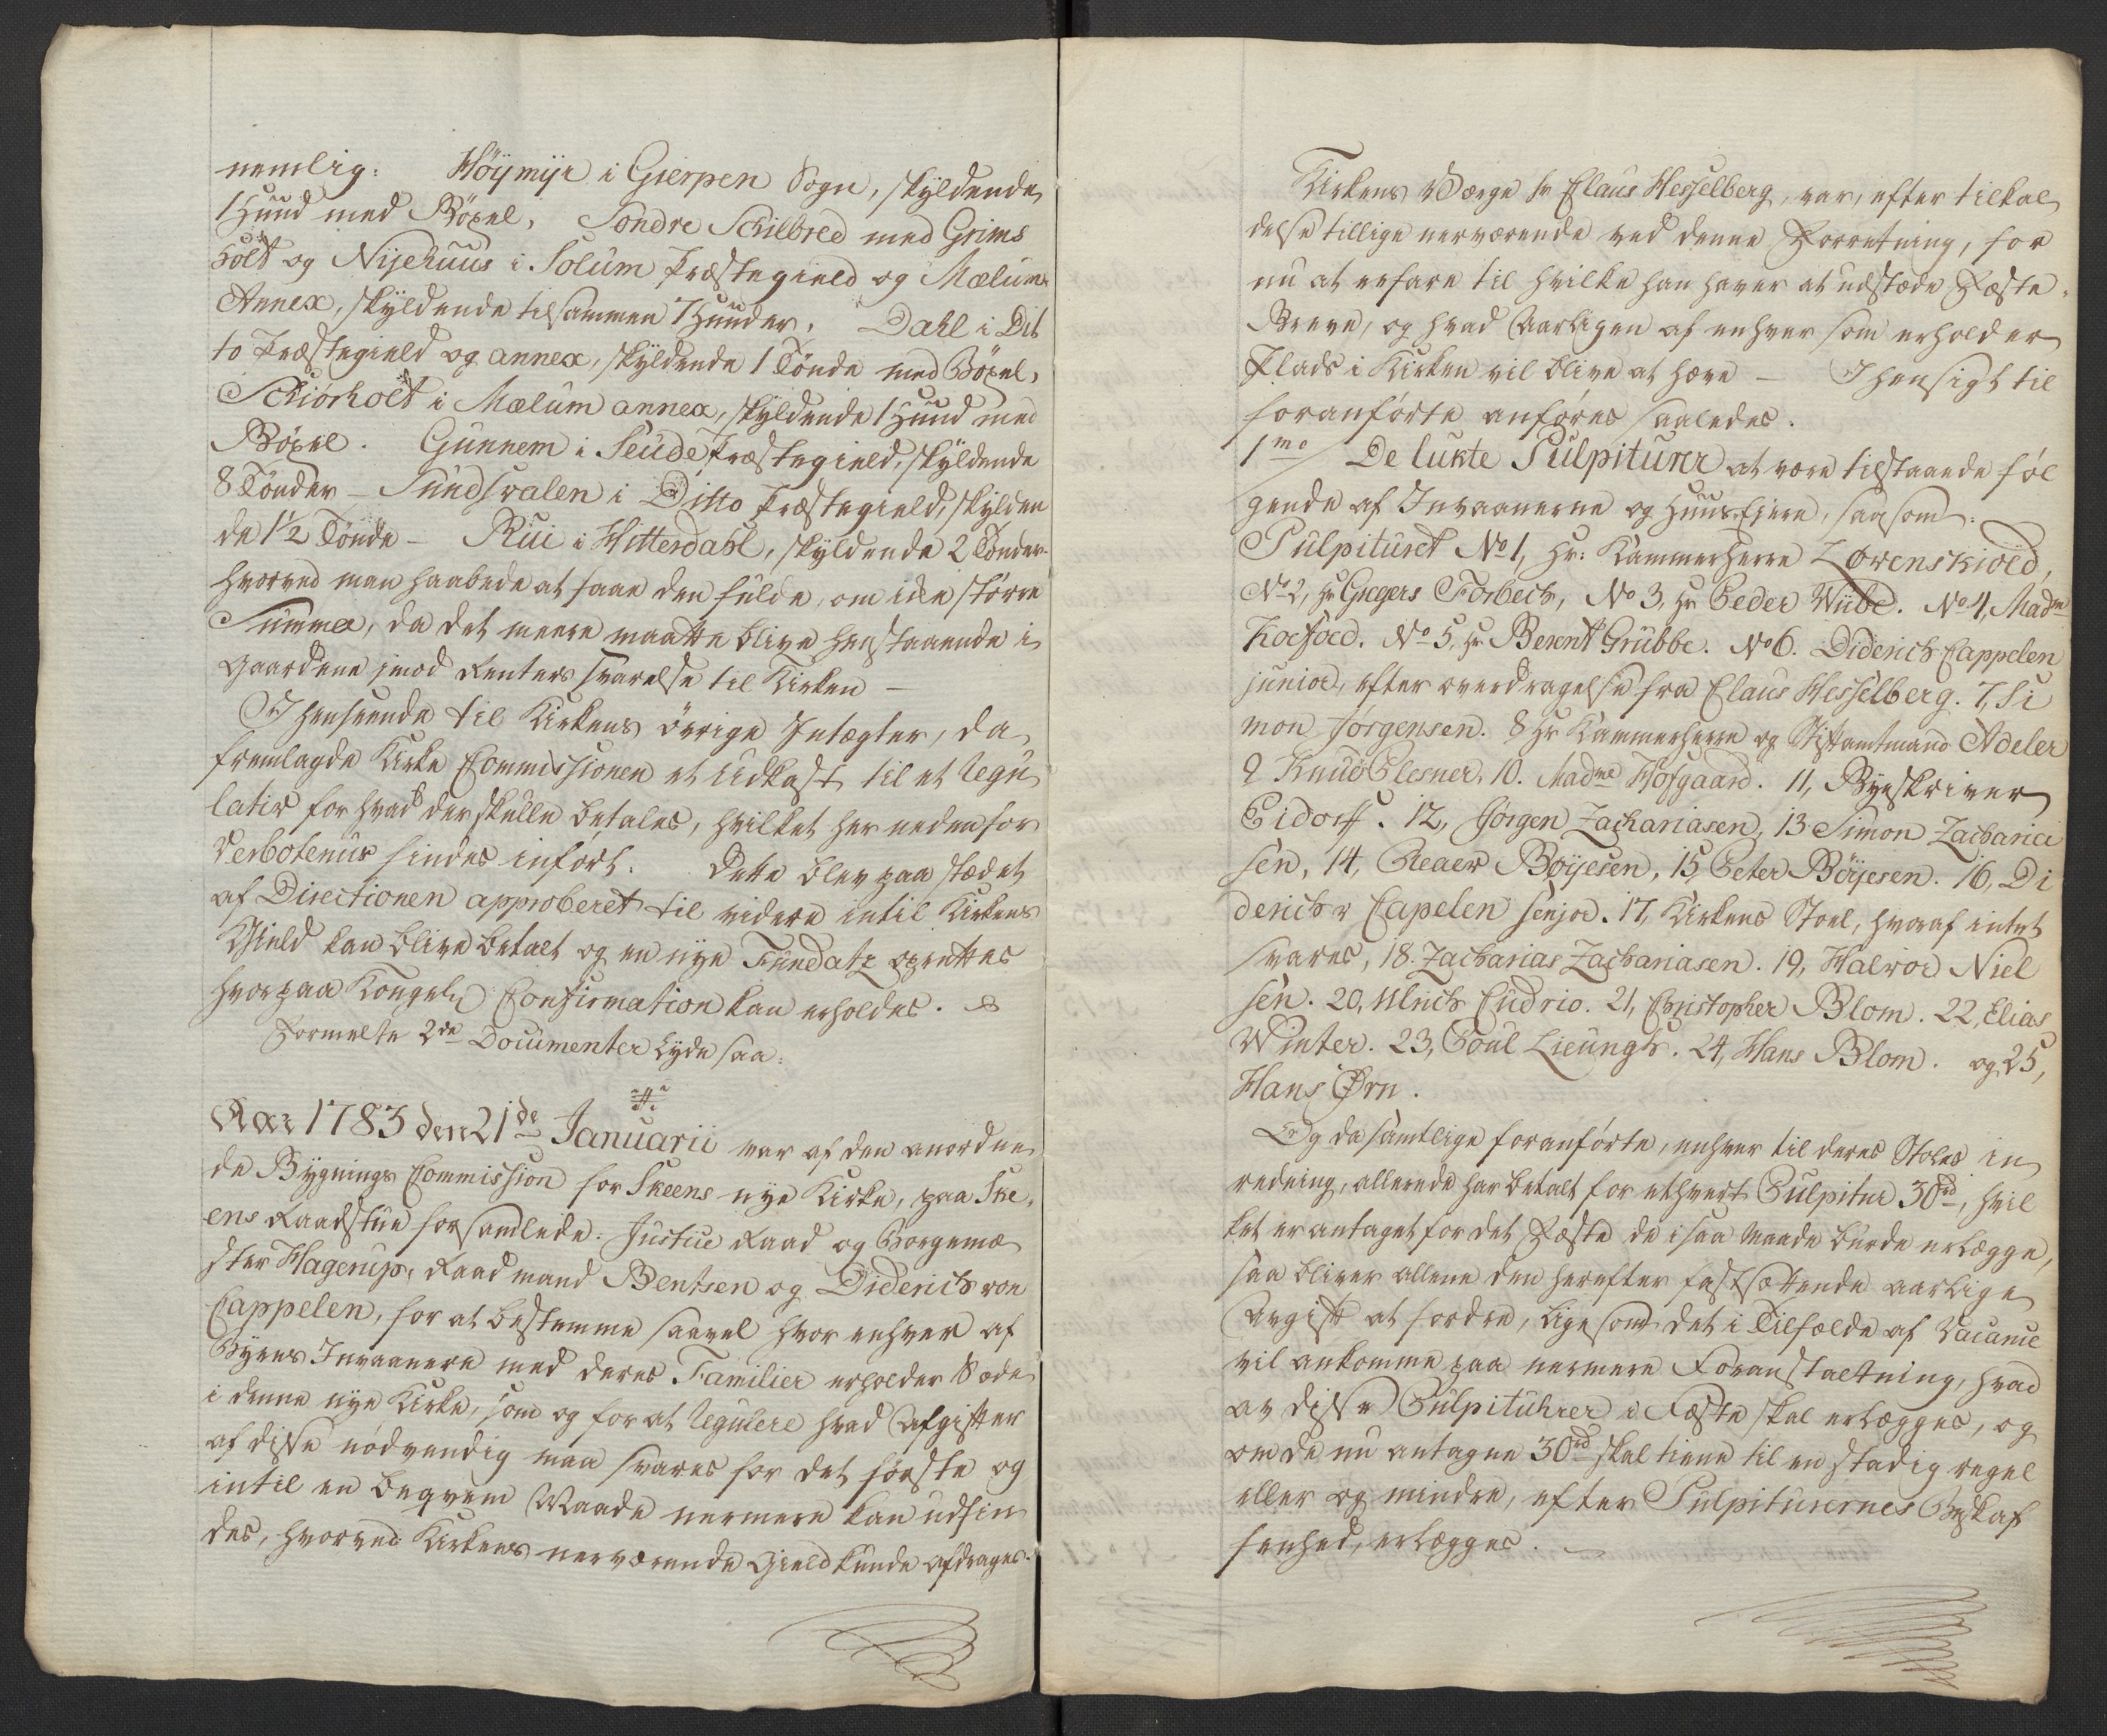 nemlig: Höÿmÿr i Gierpen Sogn, skÿldende
1 Huud med Böxel, Söndre Schilbred med Grims
holt og Nÿehuus i Solum Præstegield og Mælum
Annex, skÿldende tilsammen 7 Huuder, Dahl i Dit
to Præstegield og annex, skÿldende 1 Tönde med Böxel,
Schiörholt i Mælum annex, skÿldende 1 Huud med
Böxel. Gunnem i Seude Præstegield, skÿldende
8 Tönder – Sundsvalen i Ditto Præstegield, skÿlden
de 1½ Tönde – Rui i Hitterdahl, skÿldende 2 Tönder
hvorved man haabede at faae den fulde, om ikke större
Summa, da det meere maatte blive henstaaende i
Gaardene imod Renters svarelse til Kirken –
I henseende til Kirkens övrige Intægter, da
fremlagde Kirke Commissionen et Udkast til et Regu
lativ for hvad der skulle betales, hvilket her nedenfor
Verbotenus findes infört. Dette blev paa stædet
af Directionen approberet til videre intil Kirkens
Gield kan blive betalt og en nÿe Fundatz oprettes
hvorpaa Kongelig Confirmation kan erholdes.
Formelte 2de Documenter Lÿde saa:
Aar 1783 den 21de Januarii var af den anordne
de Bÿgnings Commission for Skeens nÿe Kirke, paa Ske,
ens Raadstue forsamlede: Justice Raad og Borgemæ
ster Hagerup, Raadmand Bentsen og Diderich von
Cappelen, for at bestemme saavel hvor enhver af
Bÿens Invaanere med deres Familier erholder Sæde
i denne nÿe Kirke, som og for at Regulere hvad Afgifter
af disse nödvendig maa svares for det förste og
intil en beqvem Maade nermere kan udfin
des, hvorved Kirkens nerværende Gield kunde afdrages.
Kirkens Værge hr Claus Hesselberg, var, efter tilkal
delse tillige nerværende ved denne Forretning, for
nu at erfare til hvilke han haver at udstæde Fæste,
Breve, og hvad Aarligen af enhver som erholder
Plads i Kirken vil blive at hæve – I hensigt til
foranförte anföres saaledes.
1mo De lukte Pulpiturer at være tilstaaede föl
gende af Invaanerne og Huus Ejere, saasom:
Pulpituret No 1, Hr: Kammerherre Løvenskiold,
No 2, Hr Gregers Forbech, No 3, Hr Peder Wiibe. No 4, Madm
Koefoed. No 5, Hr Berent Grubbe. No 6. Diderich Cappelen
junior, efter overdragelse fra Claus Hesselberg. 7, Si
mon Jørgensen. 8 Hr Kammerherre og Stiftamtmand Adeler
9 Knud Plesner, 10. Madme Hofgaard. 11, Bÿeskriver
Eidorff. 12, Jörgen Zachariasen, 13 Simon Zacharia
sen, 14, Peder Boÿesen, 15 Peter Böÿesen. 16, Di
derich v Capelen senior. 17, Kirkens Stoel, hvoraf intet
svares, 18. Zacharias Zachariasen. 19, Halvor Niel
sen. 20, Ulrich Cudrio. 21, Christopher Blom. 22, Elias
Winter. 23, Poul Lieungh. 24, Hans Blom. og 25,
Hans Ørn.
Og da samtlige foranförte, enhver til deres Stoles in
redning, allerede har betalt for ethvert Pulpitur 30rd, hvil
ket er antaget for det Fæste de i saa Maade burde erlægge,
saa bliver allene den herefter fastsættende aarlige
Avgift at fordre, ligesom det i Tilfælde af Vacance
vil ankomme paa nermere Foranstaltning, hvad
av disse Pulpituhrer i Fæste skal erlægges, og
om de nu antagne 30rd skal tiene til en stadig regel
eller og mindre, efter Pulpiturernes Beskaf
fenhed, erlægges.